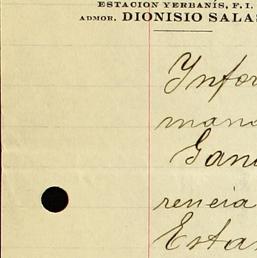 ESTACION YERBANÍS, F. I.
ADMOR. DIONISIO SALAS
Infor
mana
Gana
rencia
Esta